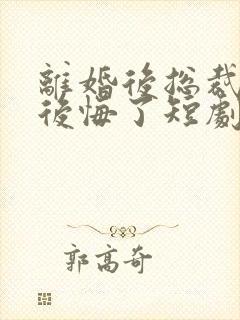 離婚後總裁
後悔了短劇
郭高奇